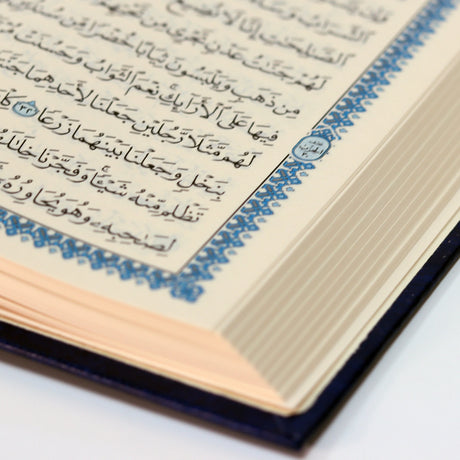 الشَّرَابُ وَسَاءَتْ
الصَّٰلِحَٰتِ إِنَّا لَا نُضِيعُ
لَهُمْ جَنَّٰتُ عَدْنٍ تَجْرِي مِن تَحْتِهِمُ
مِن ذَهَبٍ وَيَلْبَسُونَ ثِيَابًا خُضْرًا مِّن سُندُسٍ
فِيهَا عَلَى الْأَرَائِكِ نِعْمَ الثَّوَابُ وَحَسُنَتْ
لَهُم مَّثَلًا رَّجُلَيْنِ جَعَلْنَا لِأَحَدِهِمَا
بِنَخْلٍ وَجَعَلْنَا بَيْنَهُمَا زَرْعًا ٣٢
تَظْلِم مِّنْهُ شَيْئًا وَفَجَّرْنَا
لِصَٰحِبِهِ وَهُوَ يُحَاوِرُهُ